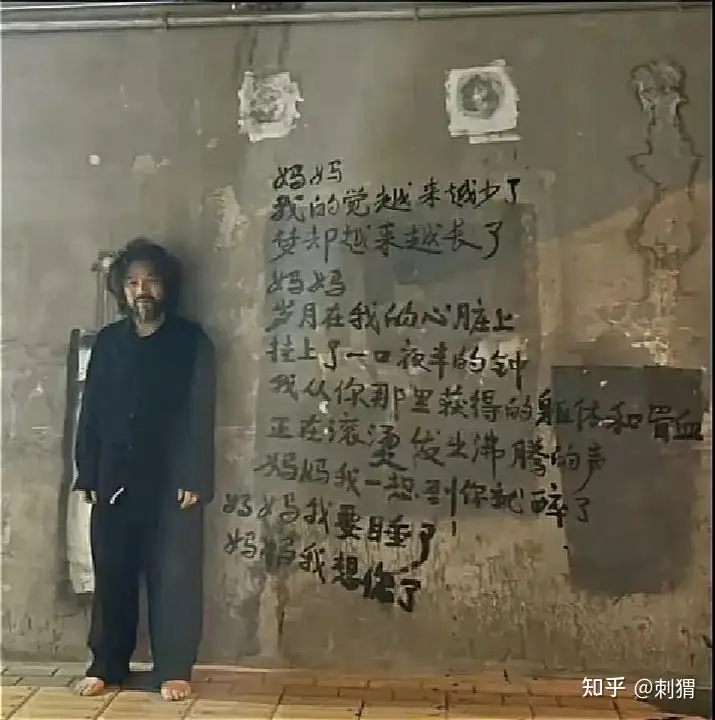 妈妈
我的觉越来越少了
梦却越来越长了
妈妈
岁月在我的心脏上
挂上了一口夜半的钟
我从你那里获得的躯体和骨血
正在滚烫发出沸腾的声
妈妈我一想到你就醉了
妈妈我要睡了
妈妈我想你了
知乎 @刺猬